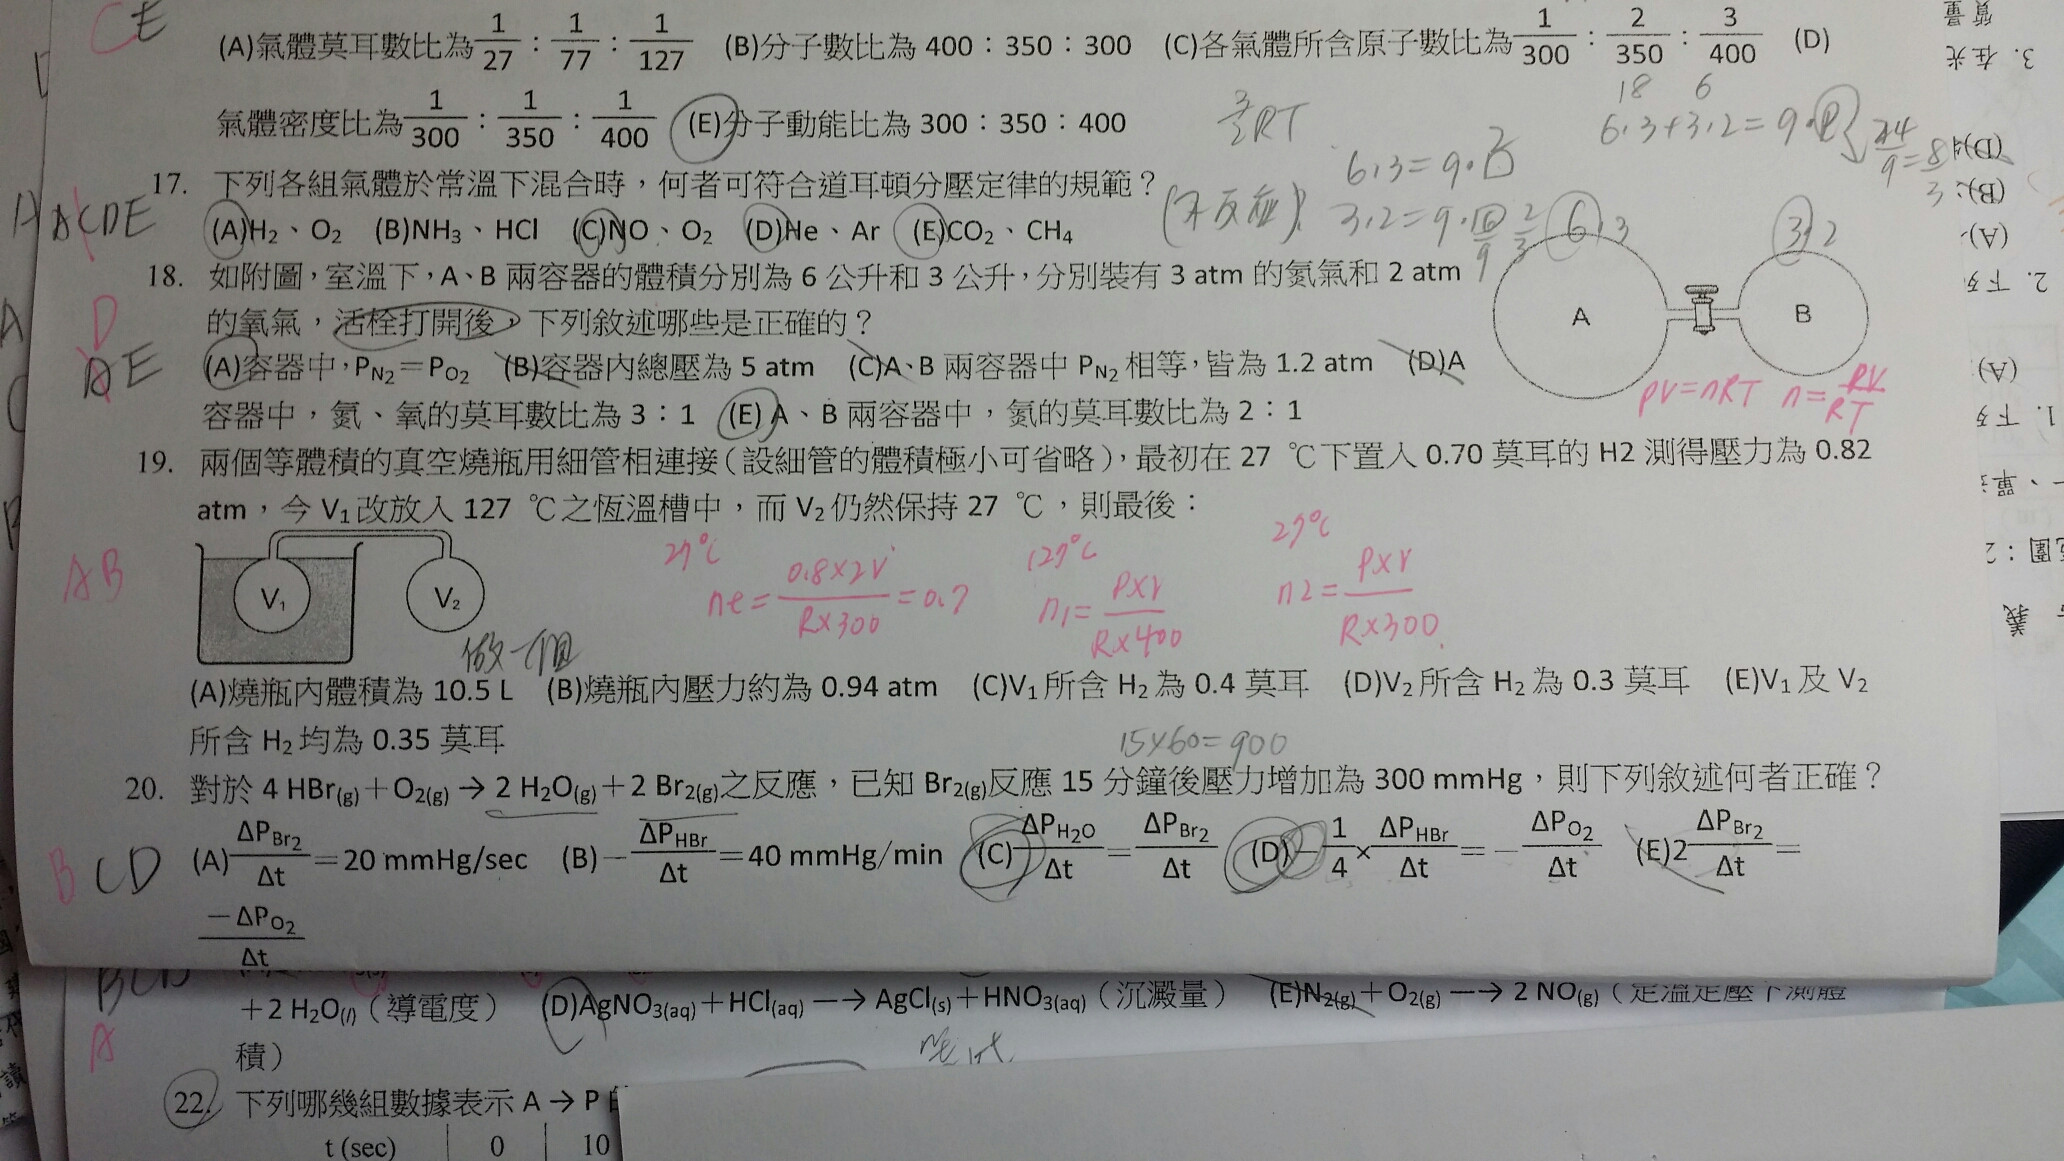 CE
(A)氣體莫耳數比為 1/27：1/77：1/127 (B)分子數比為 400：350：300 (C)各氣體所含原子數比為 1/300：2/350：3/400 (D)
氣體密度比為 1/300：1/350：1/400 (E)分子動能比為 300：350：400
3/2RT
18 6
6.3+3.2=9.
6.3=9.
3.2=9.
(不反應)
17. 下列各組氣體於常溫下混合時，何者可符合道耳頓分壓定律的規範？
ACDE
(A)H₂、O₂ (B)NH₃、HCl (C)NO、O₂ (D)He、Ar (E)CO₂、CH₄
18. 如附圖，室溫下，A、B 兩容器的體積分別為 6 公升和 3 公升，分別裝有 3 atm 的氮氣和 2 atm
的氧氣，活栓打開後，下列敘述哪些是正確的？
D
AE
(A)容器中，P_N₂＝P_O₂ (B)容器內總壓為 5 atm (C)A、B 兩容器中 P_N₂ 相等，皆為 1.2 atm (D)A
容器中，氮、氧的莫耳數比為 3：1 (E) A、B 兩容器中，氮的莫耳數比為 2：1
6.3
3.2
A
B
PV=nRT n=PV/RT
19. 兩個等體積的真空燒瓶用細管相連接（設細管的體積極小可省略），最初在 27 ℃下置入 0.70 莫耳的 H2 測得壓力為 0.82
atm，今 V₁改放入 127 ℃之恆溫槽中，而 V₂仍然保持 27 ℃，則最後：
AB
V₁
V₂
27°C
0.8×2V/R×300=0.7
127°C
n1=P×V/R×400
27°C
n2=P×V/R×300
(A)燒瓶內體積為 10.5 L (B)燒瓶內壓力約為 0.94 atm (C)V₁所含 H₂為 0.4 莫耳 (D)V₂所含 H₂為 0.3 莫耳 (E)V₁及 V₂
所含 H₂均為 0.35 莫耳
15×60=900
20. 對於 4 HBr(g)＋O₂(g)→2 H₂O(g)＋2 Br₂(g)之反應，已知 Br₂(g)反應 15 分鐘後壓力增加為 300 mmHg，則下列敘述何者正確？
B CD
(A)ΔP_Br₂/Δt＝20 mmHg/sec (B)－ΔP_HBr/Δt＝40 mmHg/min (C)ΔP_H₂O/Δt＝ΔP_Br₂/Δt (D)－1/4×ΔP_HBr/Δt＝－ΔP_O₂/Δt (E)2ΔP_Br₂/Δt＝
－ΔP_O₂/Δt
BCD
A
＋2 H₂O(l)（導電度） (D)AgNO₃(aq)＋HCl(aq)─→AgCl(s)＋HNO₃(aq)（沉澱量） (E)N₂(g)＋O₂(g)─→2 NO(g)（定溫定壓下測體
積）
22. 下列哪幾組數據表示 A→P
t (sec) 0 10